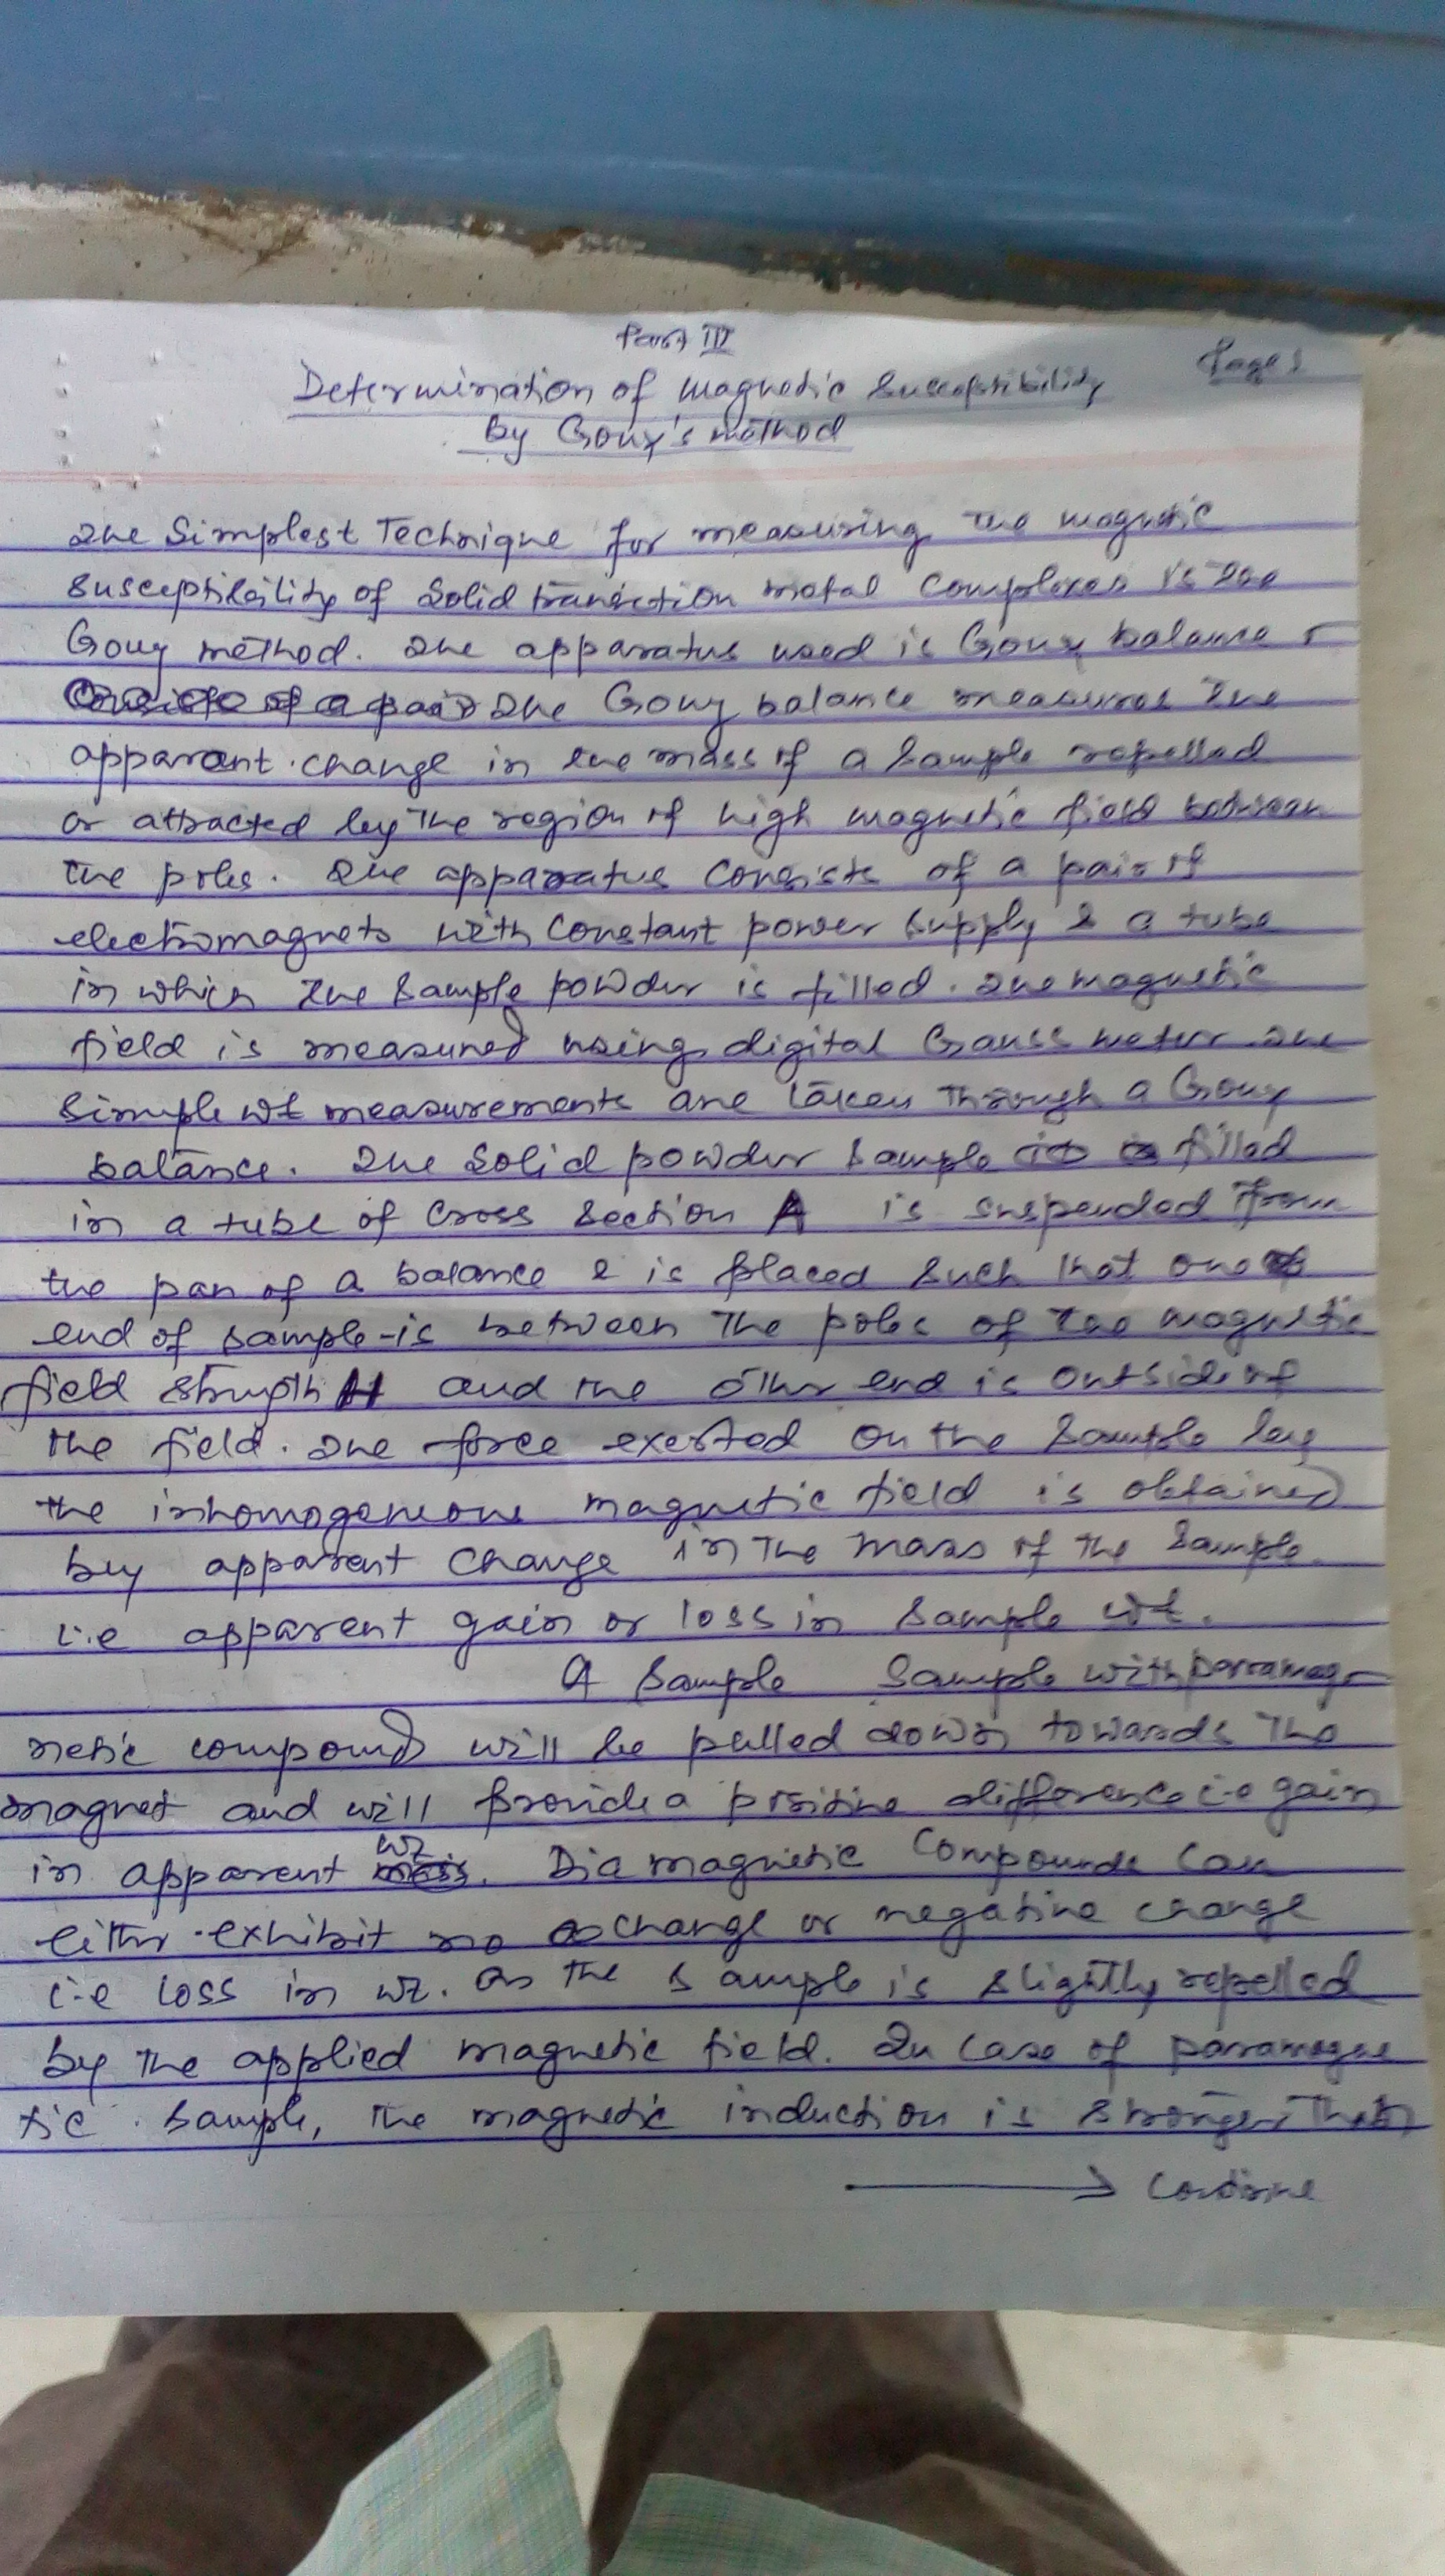 Part III
Page 1
Determination of magnetic Susceptibility
by Gouy's method
The Simplest Technique for measuring the magnetic
susceptibility of Solid transition metal complexes is the
Gouy method. The apparatus used is Gouy balance
The Gouy balance measures the
apparent change in the mass of a sample repelled
or attracted by the region of high magnetic field between
the poles. The apparatus consists of a pair of
electromagnets with constant power supply & a tube
in which the sample powder is filled. The magnetic
field is measured using digital Gauss meter. The
simple wt measurements are taken through a Gouy
balance. The solid powder sample filled
in a tube of Cross Section A is suspended from
the pan of a balance & is placed such that one
end of sample is between the poles of the magnetic
field strength H and the other end is outside of
the field. The force exerted on the sample by
the inhomogeneous magnetic field is obtained
by apparent change in the mass of the sample.
i.e apparent gain or loss in sample wt.
A sample Sample with paramag-
netic compound will be pulled down towards the
magnet and will provide a positive difference i.e gain
in apparent wt. Diamagnetic compounds can
either exhibit no change or negative change
i.e loss in wt. as the sample is slightly repelled
by the applied magnetic field. In case of paramagne
tic sample, the magnetic induction is stronger than
→ Continue